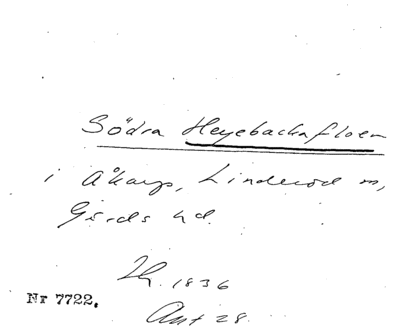 Södra Heyebackafloen
i Åkarp, Linderöd sn,
Gärds hd.
Lh. 1836
Nr 7722.
Akt 28.